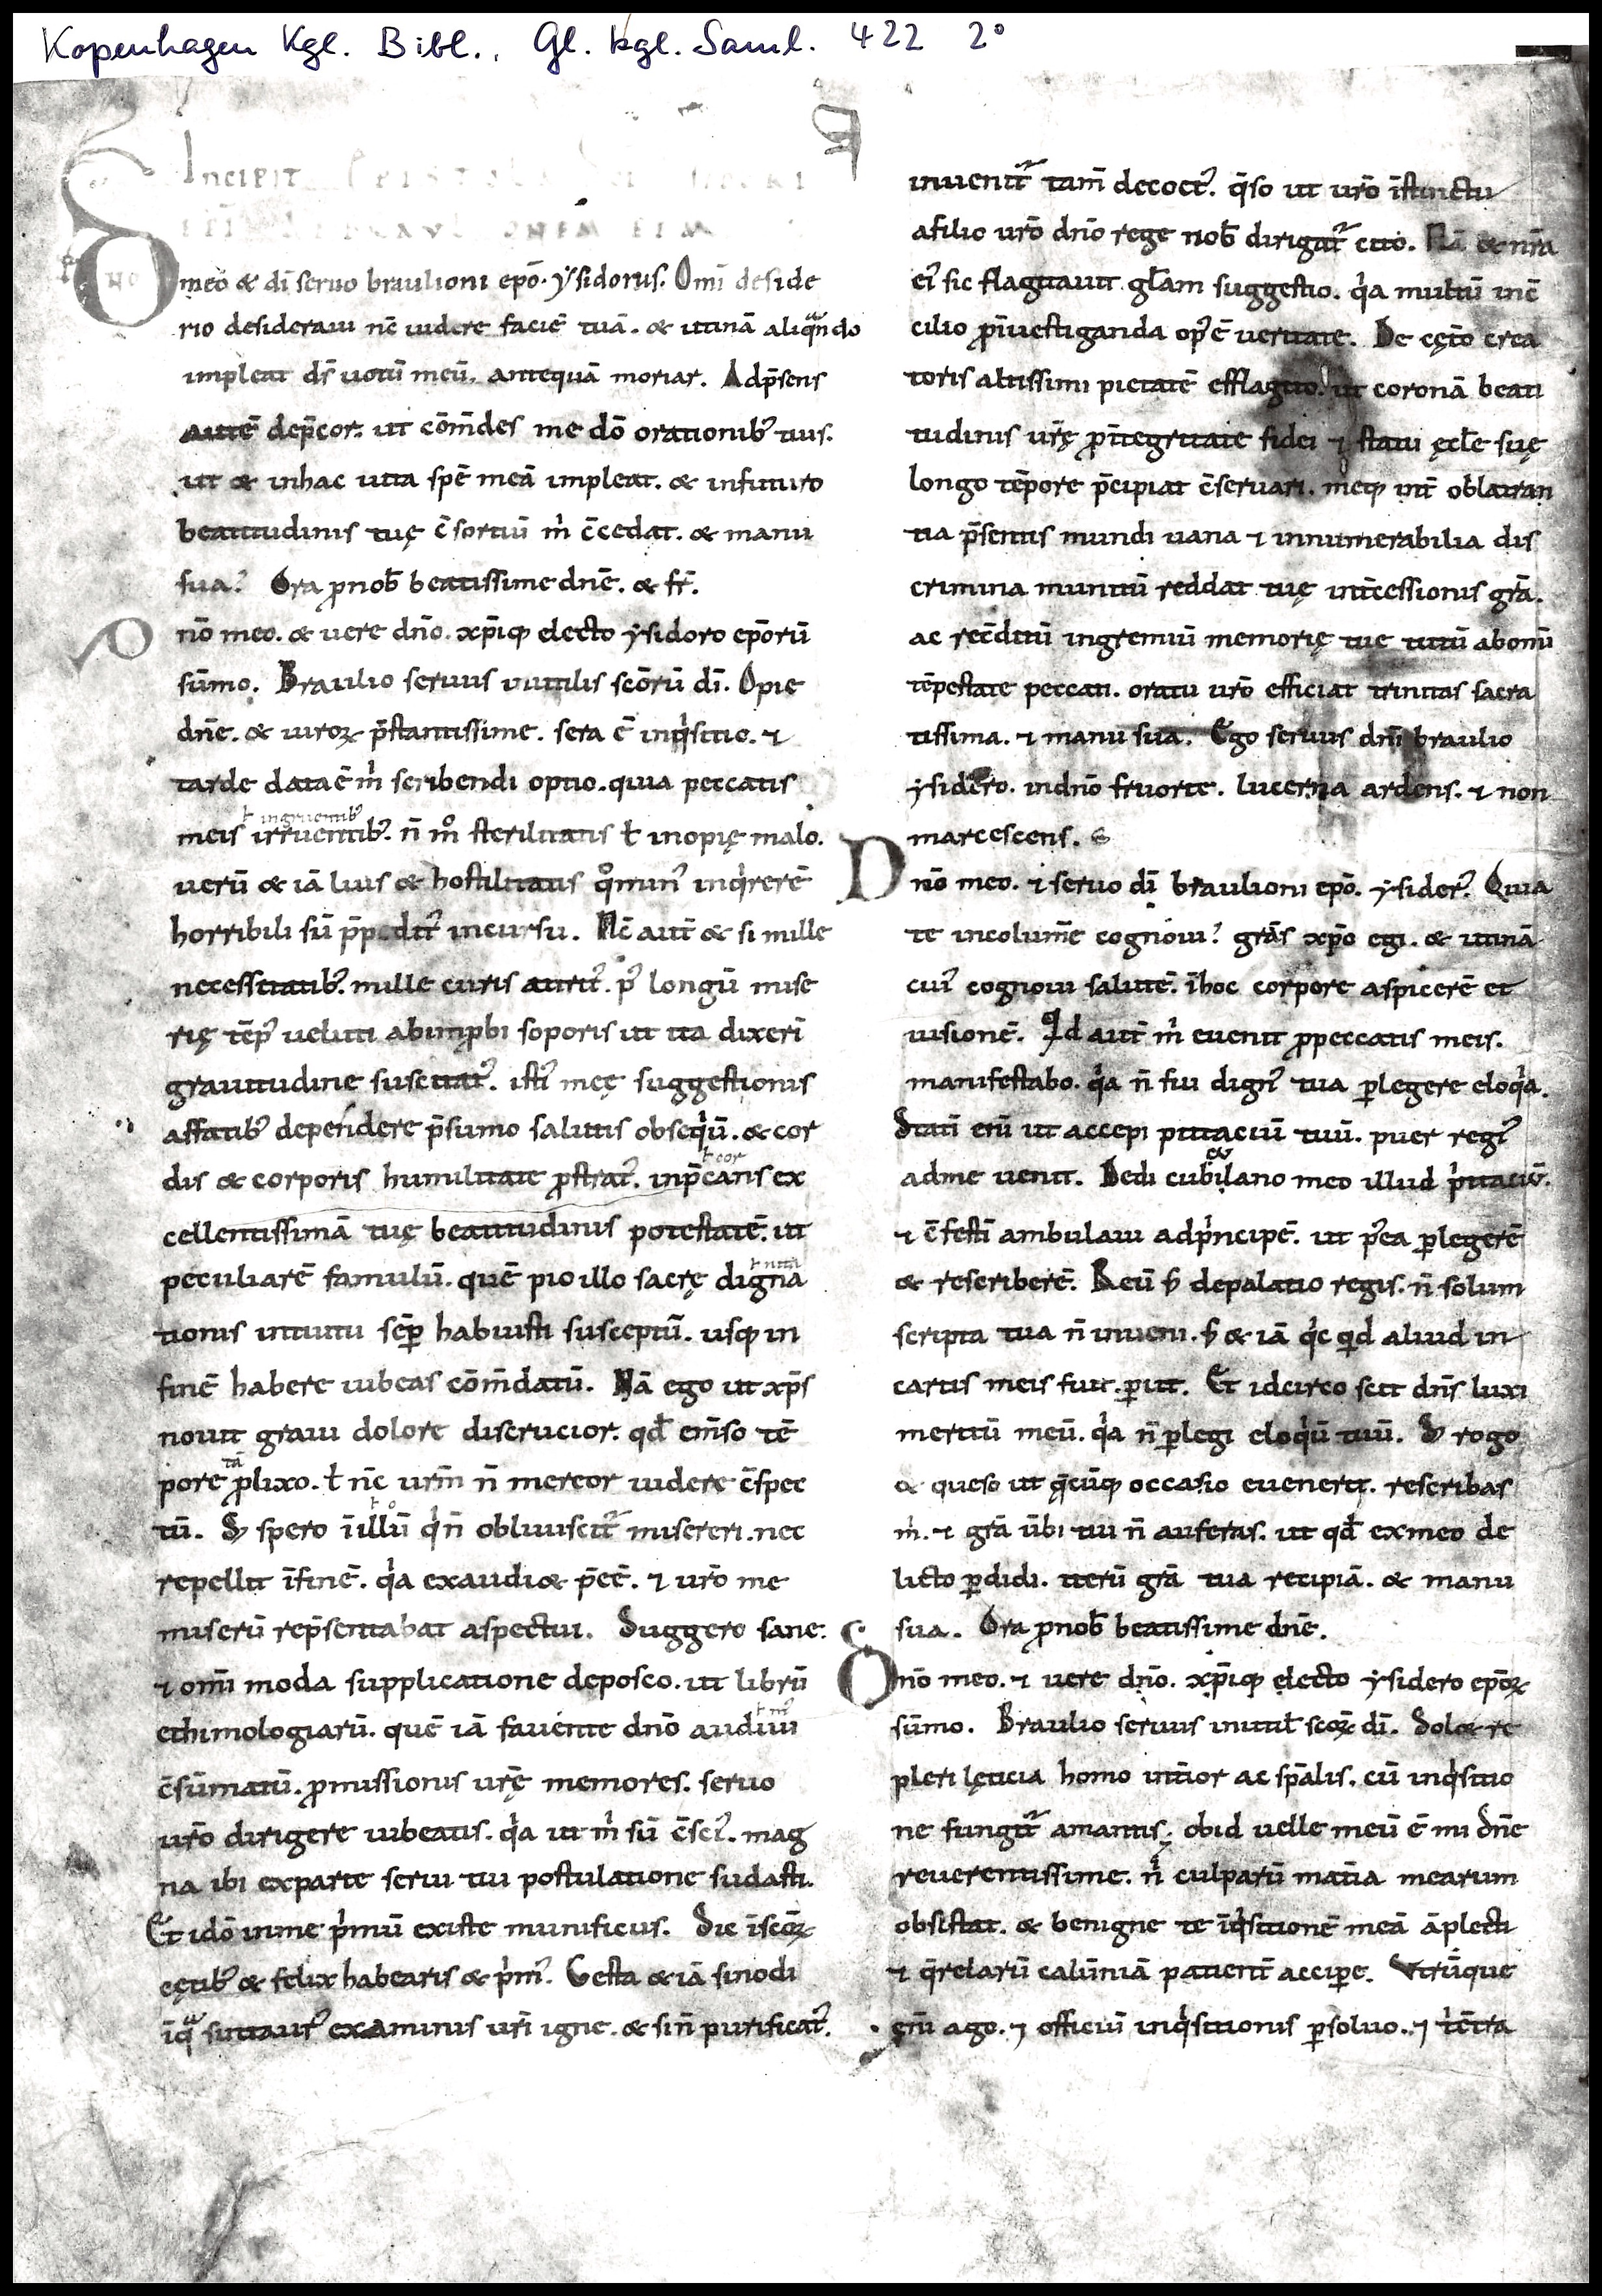 Kopenhagen Kgl. Bibl., Gl. kgl. Saml. 422 2°
INCIPIT
meo & dī seruo braulioni epō. ysidorus. Omī deside
rio desideraui nc̄ uidere faciē tuā. & utinā aliqͣndo
impleat ds̄ uotū meū. antequā moriar. Adp̄sens
autē dep̄cor. ut cōm̄des me dō orationibꝰ tuis.
ut & inhac uita spē meā impleat. & infuturo
beatitudinis tuę c̄sortiū m̍ c̄cedat. & manu
sua. Ora ꝓnob̄ beatissime dnē. & fr̄.
nō meo. & uere dn̄o. xp̄iqꝫ electo ysidoro epōrū
sūmo. Braulio seruus inutilis scōrū dī. Opie
dnē. & uiroꝝ p̄stantissime. sera ē inq̍sitio. ⁊
tarde dataē m̍ scribendi optio. quia peccatis
ł ingruentibꝰ
meis irruentibꝰ. n̄ mͦ sterilitatis ł inopię malo.
uerū & iā luis & hostilitatis qͦminꝰ inq̍rerē
horribili sū p̄peditꝰ incursu. Nc̄ aut̄ & si mille
necessitatibꝰ. mille curis auritꝰ. pꝰ longū mise
rię tēpꝰ ueluti abimꝓbi soporis ut ita dixerī
grauitudine suscitatꝰ. istiꝰ meę suggestionis
affatibꝰ dependere p̄sumo salutis obseq̍ū. & cor
ł cor
dis & corporis humilitate ꝓstratꝰ. inp̄cans ex
cellentissimā tuę beatitudinis potestatē. ut
peculiarē famulū. quē pio illo sacrę digna
tionis intuitu sēꝑ habuisti susceptū. usqꝫ in
finē habere iubeas cōm̄datū. Nā ego ut xp̄s
nouit graui dolore discrucior. qd̄ em̄so tē
tā
pore ꝓlixo. ł nc̄ urm̄ n̄ mereor uidere c̄spec
tū. Sꝫ spero īillū q̍n̄ obliuiscit᷑ misereri. nec
repellit īfinē. q̍a exaudi& p̄cē. ⁊ urō me
miserū rep̄sentabat aspectui. Suggero sane.
⁊ omī moda supplicatione deposco. ut librū
ethimologiarū. quē iā fauente dn̄o audiui
c̄sūmatū. ꝓmissionis urę̄ memores. seruo
urō dirigere iubeatis. q̍a ut m̍ sū c̄sciꝰ. mag
na ibi exparte serui tui postulatione sudasti.
Et idō inme p̍mū existe munificus. Sic īscōꝝ
cętibꝰ & felix habearis & p̍mꝰ. Gesta & iā sinodi
īqͣ sintariꝰ examinis urī igne. & sin̄ purificatꝰ.
inuenit᷑ tam̄ decoctꝰ. q̄so ut urō īstinctu
afilio urō dn̄o rege nob̄ dirigat᷑ cito. Nā & nr̄a
eiꝰ sic flagitauit głam suggestio. q̍a multū inc̄
cilio ꝓinuestiganda opꝰē ueritate. De cęto crea
toris altissimi pietatē efflagito. ut coronā beati
tudinis urę̄ ꝓintegritate fidei ⁊ statu ęcłe suę
longo tēpore p̄cipiat c̄seruari. meqꝫ int̄ oblatran
tia p̄sentis mundi uana ⁊ innumerabilia dis
crimina munitū reddat tuę int̄cessionis grā.
ac rec̄ditū ingremiū memorię tue tutū abomī
tēpestate peccati. oratu urō efficiat trinitas sacra
tissima. ⁊ manu sua. Ego seruus dn̄i braulio
ysidero. indn̄o fruorte. lucerna ardens. ⁊ non
marcescens.
D nō meo. ⁊ seruo dī braulioni epō. ysiderꝰ. Quia
te incolumē cognoui. grās xp̄o egi. & utinā
cuiꝰ cognoui salutē. īhoc corpore aspicerē et
uisionē. Qd aut̄ m̍ euenit ꝓpeccatis meis.
manifestabo. q̍a n̄ fui dignꝰ tua ꝑlegere eloq̍a.
Statī enī ut accepi pitaciū tuū. puer regiꝰ
adme uenit. Dedi cubilano meo illud p̍ttaciū.
⁊ c̄festī ambulaui adp̍ncipē. ut pꝰea ꝑlegerē
& rescriberē. Reūsꝰ depalatio regis. n̄ solum
scripta tua n̄ inueni. sꝫ & iā q̍c qd aliud in
cartis meis fuit. ꝑiit. Et idcirco scit dn̄s luxi
meritū meū. q̍a n̄ ꝑlegi eloq̍ū tuū. Sꝫ rogo
& queso ut q̄cūqꝫ occasio euenerit. rescribas
m̍. ⁊ grā ūbi tui n̄ auferas. ut qd̄ exmeo de
licto ꝑdidi. iterū grā tua recipiā. & manu
sua. Ora ꝓnob̄ beatissime dnē.
nō meo. ⁊ uere dn̄o. xp̄iqꝫ electo ysidero epōꝝ
sūmo. Braulio seruus inutił scōꝝ dī. Sol& re
pleri lęticia homo int̄ior ac sp̄alis. cū inq̍sitio
ne fungit᷑ amantis. obid uelle meū ē mi dnē
reuerentissime. n̍ culparū mat̄ia mearum
obsistat. & benigne te īq̍sitionē meā āplecti
⁊ q̄relarū calūniā patient̄ accipe. Vtrūque
enī ago. ⁊ officiū inq̍sitionis ꝑsoluo. ⁊ t̍c̄tra